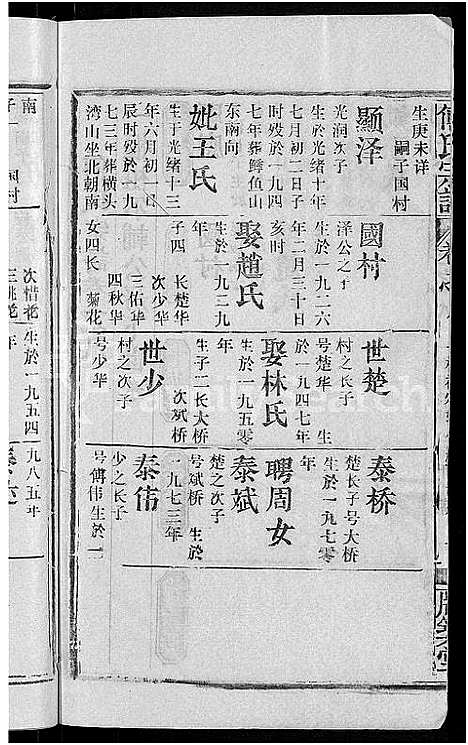 生庚未详
嗣子国村
顯泽
光润次子
生於光绪十年
七月初二日子
时殁於一九四
七年葬鲟鱼山
东南向
妣王氏
生于光绪十三
年六月初一日
辰时殁於一九
七三年葬横头
湾山坐北朝南
國村
泽公之子
生於一九二六
年二月三十日
亥时
娶趙氏
生於一九二九
年
子四 长楚华
次少华
三佑华
四秋华
女四长 菊花
次惜花
三桃花
世楚
村之长子
号楚华 生
於一九四七年
娶林氏
生於一九五零
年
生子二长大桥
次斌桥
世少
村之次子
号少华
生於一九五四
年
泰桥
楚长子号大桥
生於一九七零
年
聘周女
泰斌
楚之次子
号斌桥 生於
一九七三年
泰伟
少之长子
号傅伟生於一
九八五年
南